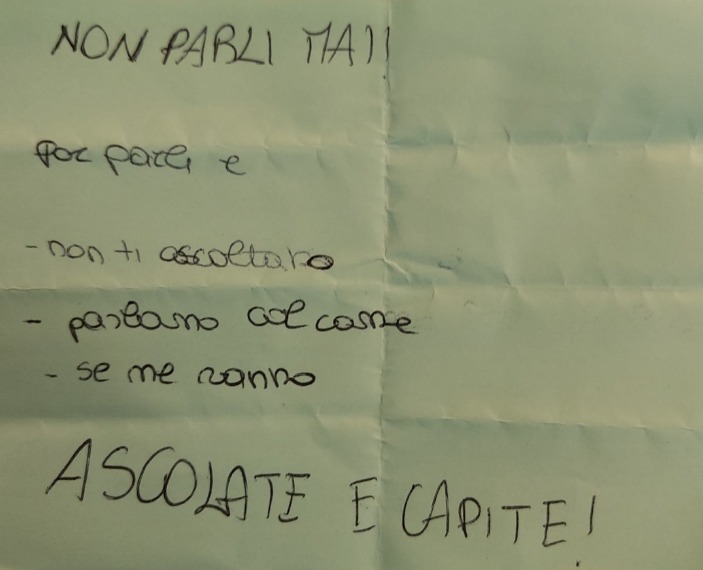 NON PARLI MAI!
poi parli e
- non ti ascoltano
- parlano col cane
- se ne vanno
ASCOLATE E CAPITE!